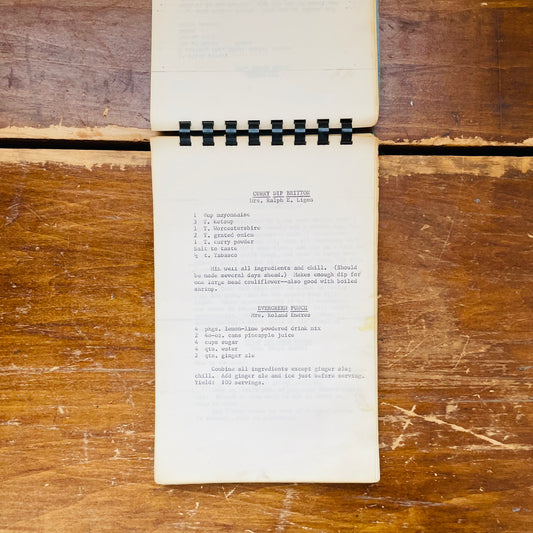 CURRY DIP BRITTON
Mrs. Ralph E. Ligon
1 Cup mayonnaise
3 T. Ketsup
1 T. Worcestershire
2 T. grated onion
1 T. curry powder
Salt to taste
½ t. Tabasco
Mix well all ingredients and chill. (Should
be made several days ahead.) Makes enough dip for
one large head cauliflower--also good with boiled
shrimp.
EVERGREEN PUNCH
Mrs. Roland
4 pkgs. lemon-lime powdered drink mix
2 46-oz. cans pineapple juice
4 cups sugar
4 qts. water
2 qts. ginger ale
Combine all ingredients except ginger ale;
chill. Add ginger ale and ice just before serving.
Yield: 100 servings.